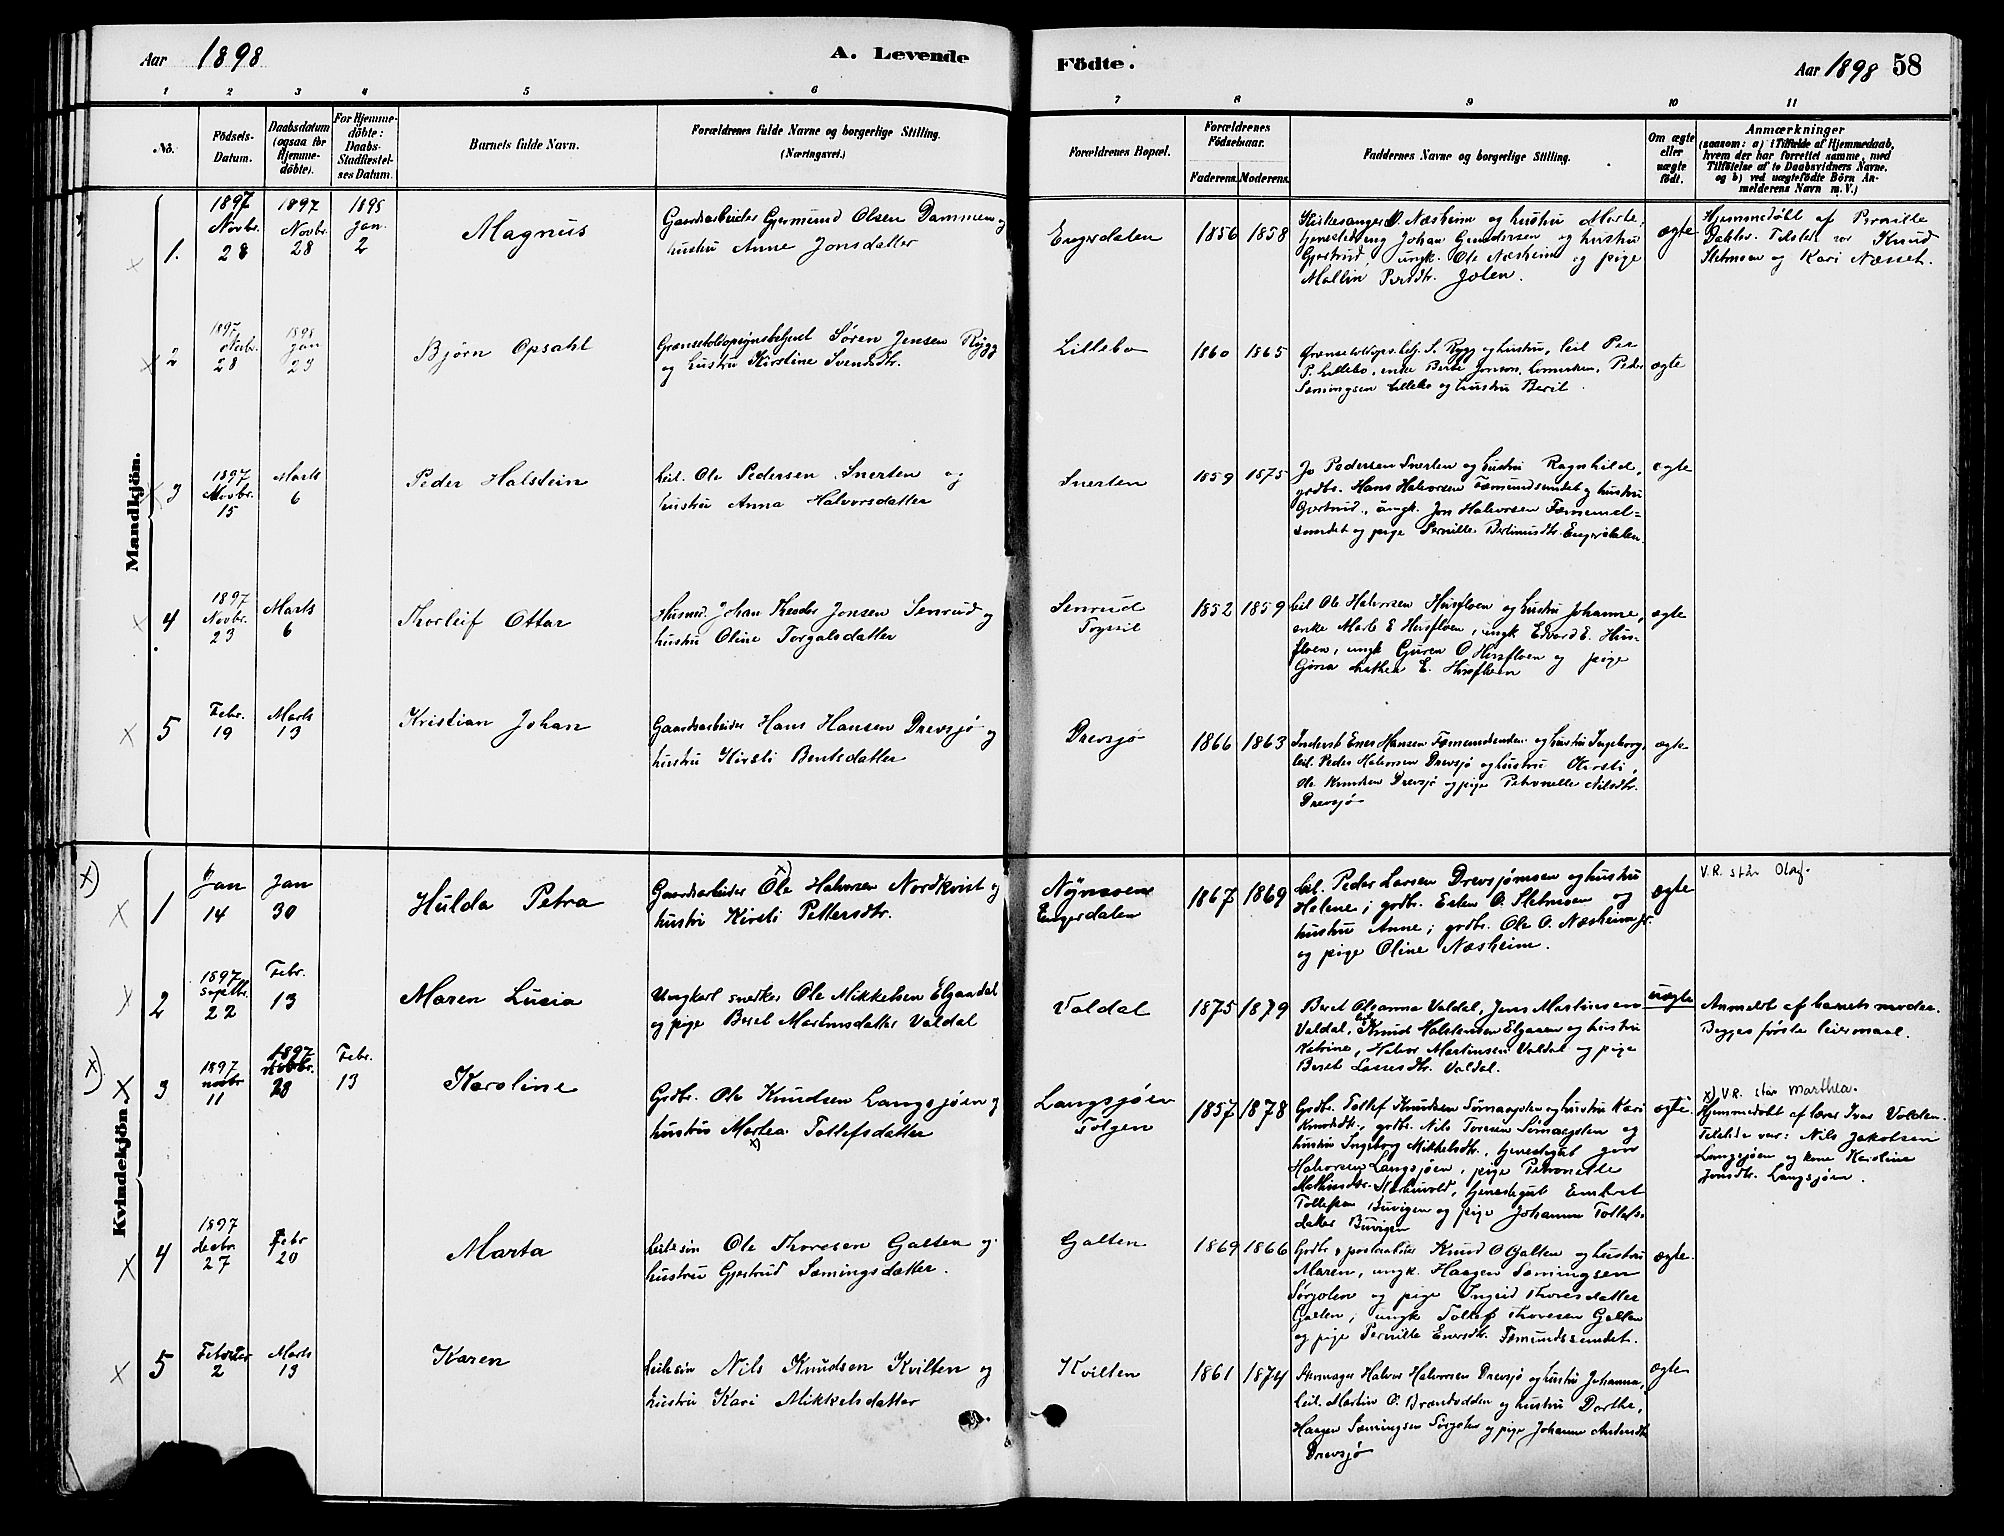 Aar 1898
A. Levende
Födte.
Aar 1898 58
1 2 3 4 5 6 7 8 9 10 11
No.
Födsels-
Datum.
Daabsdatum
(ogsaa for
Hjemme-
döbte).
For Hjemme-
döbte:
Daabs-
Stadfæstel-
ses Datum.
Barnets fulde Navn.
Forældrenes fulde Navne og borgerlige Stilling.
(Næringsvei.)
Forældrenes Bopæl.
Forældrenes
Födselsaar.
Faderens. Moderens.
Faddernes Navne og borgerlige Stilling.
Om ægte
eller
uægte
födt.
Anmærkninger
(saasom: a) i Tilfælde af Hjemmedaab,
hvem der har forrettet samme, med
Tilföielse af to Daabsvidners Navne,
og b) ved uægtefödte Börn An-
melderens Navn m. V.)
Mandkjön.
1.
1897
Novbr.
28
1897
Novbr.
28
1898
Jan.
2
Magnus
Gaardsarbeider Gjermund Olsen Dammen og
hustru Anne Jonsdatter
Engerdalen
1856 1858
Kirkesanger O Næsheim og hustru Marte,
Johan Gundersen og hustru
Gjertrud, ungk. Ole Næsheim og pige
Mallin Persdtr. Jolen.
ægte
Hjemmedøbt af Pernille
Tilstede var Knud
Sletmoen og Kari Næsset.
2
1897
Novbr.
28
1898
Jan
23
Bjørn Opsahl
Grænsetoldopsynsbetjent Søren Jensen Rygg
og hustru Kirstine Svendsdtr.
Lillebo
1860 1865
S. Rygg og hustru, leil Per
P. Lillebo, enke Berte Jonson, Peder
Sæmingsen Lillebo og hustru Berit.
ægte
3
1897
Novbr.
15
Marts
6
Peder Halstein
Leil. Ole Pedersen Snerten og
hustru Anna Halvorsdatter
Snerten
1859 1875
Jo Pedersen Snerten og hustru Ragnhilde,
grdbr. Hans Halvorsen Fæmundsundet og hustru
Gjertrud, ungk. Jon Halvorsen Fæmund-
sundet og pige Pernille Engerdalen.
ægte
4
1897
Novbr.
23
Marts
6
Thorleif Ottar
Husmd. Johan Theodor Jonsen Senrud og
hustru Oline Torgalsdatter
Senrud
Trysil
1852 1859
Leil Ole Halvorsen Husfloen og hustru Johanne,
enke Marte E Husfloen, ungk Edvard E. Hus-
floen, ungk Guren O Husfloen og pige
E. Husfloen
ægte
5
Febr.
19
Marts
13
Kristian Johan
Gaardsarbeider Hans Hansen Drevsjø og
hustru Kirsti Berntsdatter
Drevsjø
1866 1863
Inderst Hansen Fæmundsenden og hustru Ingeborg,
leil. Peder Halvorsen Drevsjø og hustru Kirsti,
Ole Knudsen Drevsjø og pige Petronelle Nilsdtr.
Drevsjø
ægte
Kvindekjön.
x)
1
Jan
14
Jan
30
Hulda Petra
Gaardsarbeider x) Ole Halvorsen Nordkvist og
hustru Kirsti Pettersdtr.
Engerdalen
1867 1869
Leil. Peder Larsen Drevsjømoen og hustru
Helene; grdbr. Esten O. Sletmoen og
hustru Anne; grdbr. Ole O. Næsheim jr.
og pige Oline Næsheim.
ægte
V.R. står Olaf.
2
1897
Septbr.
22
Febr.
13
Maren Lucia
Ungkarl snedker Ole Mikkelsen Elgaadal
og pige Beret Martinusdatter Valdal
Valdal
1875 1879
Beret Olianna Valdal, Jens Martinsen
Valdal, Knud Halstensen Elgaaen og hustru
Katrine, Halvor Martinsen Valdal og pige
Beret Lassesdtr. Valdal.
uægte
Anmeldt af barnets moder.
Begges første leiermaal.
x)
3
1897
novbr
11
1897
Novbr.
28
Febr.
13
Karoline
Grdbr. Ole Knudsen Langsjøen og
hustru Martea x) Tollefsdatter
Langsjøen
Tolgen
1857 1878
Grdbr. Tollef Knudsen Sømaagsten og hustru Kari
Knudsdtr., grdbr. Nils Toresen Sømaagsten og
hustru Ingeborg Mikkelsdtr., tjenestegut
Halvorsen Langsjøen, pige Petronelle
tjenestegut Embret
Tollefsen Buvigen og pige Johanne Tollefs-
datter Buvigen
ægte
x) V.R. står Marthea.
Hjemmedøbt af lærer Ivar Volden.
Tilstede var: Nils Jakobsen
Langsjøen og kone Karoline
Jonsdtr. Langsjøen.
4
1897
decbr
27
Febr
20
Marta
Leilesin Ole Thoresen Galten og
hustru Gjertrud Sæmingsdatter.
Galten
1869 1866
Grdbr. & postaabner Knud O Galten og hustru
Maren, ungk. Haagen Sæmingsen
Sørjolen og pige Ingrid Thoresdatter
Galten, ungk Tollef Thoresen Galten
og pige Pernille Fæmundssundet.
ægte.
5
Februar
2
Marts
13
Karen
Leilesin Nils Knudsen Kvilten og
hustru Kari Mikkelsdatter
Kvilten
1861 1874
Halvor Halvorsen Drevsjø og hustru Johanna,
leil. Martin O. Brændodden og hustru Dorthe,
Haagen Sæmingsen Sørjolen og pige Johanne
Drevsjø
ægte